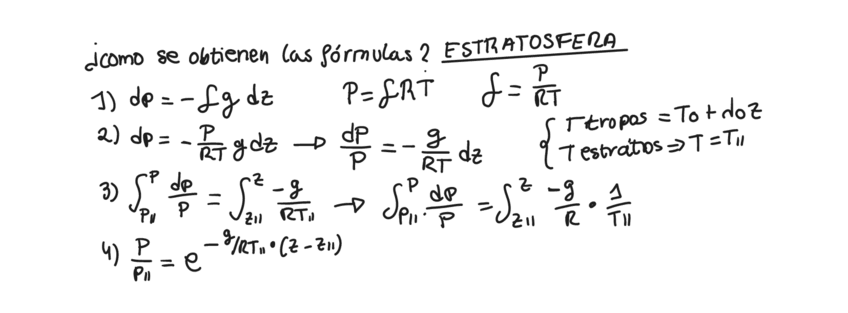 ¿como se obtienen las fórmulas? ESTRATOSFERA
1) dp = -ρg dz P = ρRT ρ = P/RT
2) dp = - P/RT g dz → dP/P = - g/RT dz { T tropos = T0 + α0 Z
T estratos ⇒ T = T11
3) ∫_{P11}^{P} dp/P = ∫_{Z11}^{Z} -g/RT11 → ∫_{P11}^{P} dp/P = ∫_{Z11}^{Z} -g/R · 1/T11
4) P/P11 = e^{-g/RT11 · (Z - Z11)}